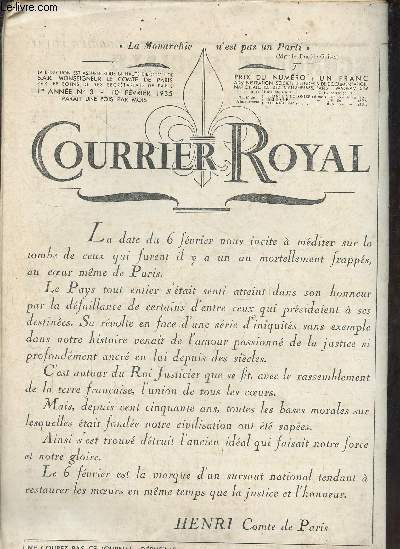 « La Monarchie n'est pas un Parti »
S.A.R. MONSEIGNEUR LE COMTE DE PARIS
1re ANNÉE N° 3 - 10 FÉVRIER 1935
PARAIT UNE FOIS PAR MOIS
PRIX DU NUMÉRO : UN FRANC
COURRIER ROYAL
La date du 6 février nous incite à méditer sur la
tombe de ceux qui furent il y a un an mortellement frappés,
au cœur même de Paris.
Le Pays tout entier s'était senti atteint dans son honneur
par la défaillance de certains d'entre ceux qui présidaient à ses
destinées. Sa révolte en face d'une série d'iniquités sans exemple
dans notre histoire venait de l'amour passionné de la justice si
profondément ancré en lui depuis des siècles.
C'est autour du Roi Justicier que se fit, avec le rassemblement
de la terre française, l'union de tous les cœurs.
Mais, depuis cent cinquante ans, toutes les bases morales sur
lesquelles était fondée notre civilisation ont été sapées.
Ainsi s'est trouvé détruit l'ancien idéal qui faisait notre force
et notre gloire.
Le 6 février est la marque d'un sursaut national tendant à
restaurer les mœurs en même temps que la justice et l'honneur.
HENRI Comte de Paris
NE COUPEZ PAS CE JOURNAL